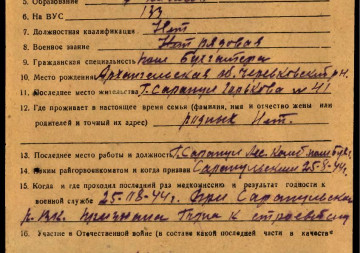 5. Образование
6. На ВУС 133
7. Должностная квалификация Нет
8. Военное звание Нет рядовая
9. Гражданская специальность пом бухгалтера
10. Место рождения Архангельская об. Черевковский р-н.
11. Последнее место жительства Г. Сарапул Горькова № 41
12. Где проживает в настоящее время семья (фамилия, имя и отчество жены или
родителей и точный их адрес) родных Нет.
13. Последнее место работы и должность Г. Сарапул Лес. Комб
14. Каким райгорвоенкоматом и когда призван Сарапульским 25-8-44г.
15. Когда и где проходил последний раз медкомиссию и результат годности к
военной службе 25-08-44г. При Сарапульском
р-В.К. признана Годна к строевой
16. Участие в Отечественной войне (в составе какой последней части и качеств